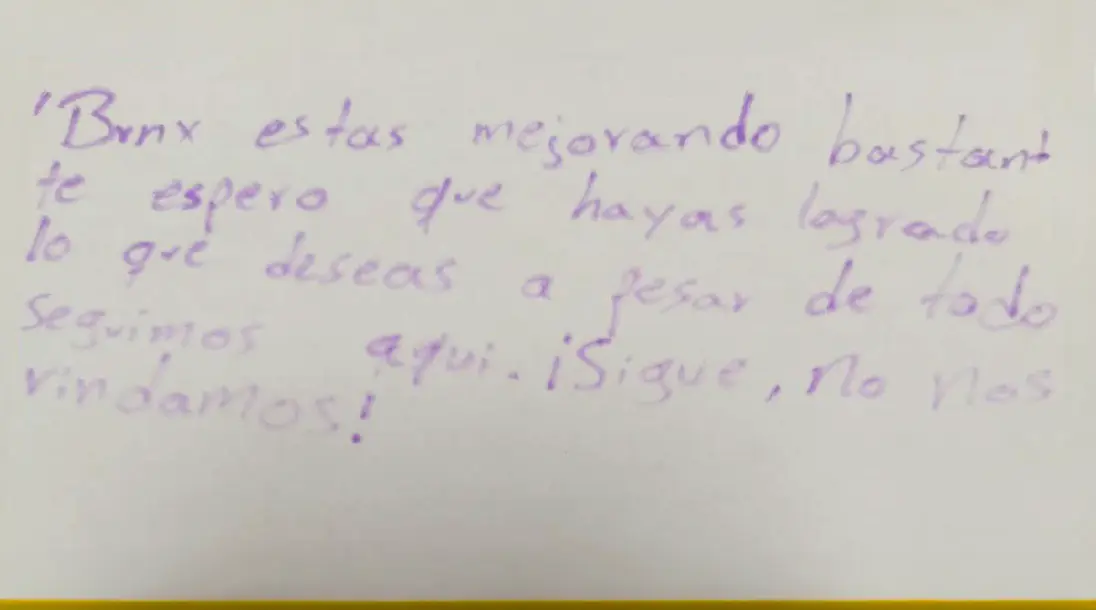 'Brnx estas mejorando bastant
te espero que hayas lograda
lo que deseas a pesar de todo
seguimos aqui. ¡Sigue, no nos
rindamos!